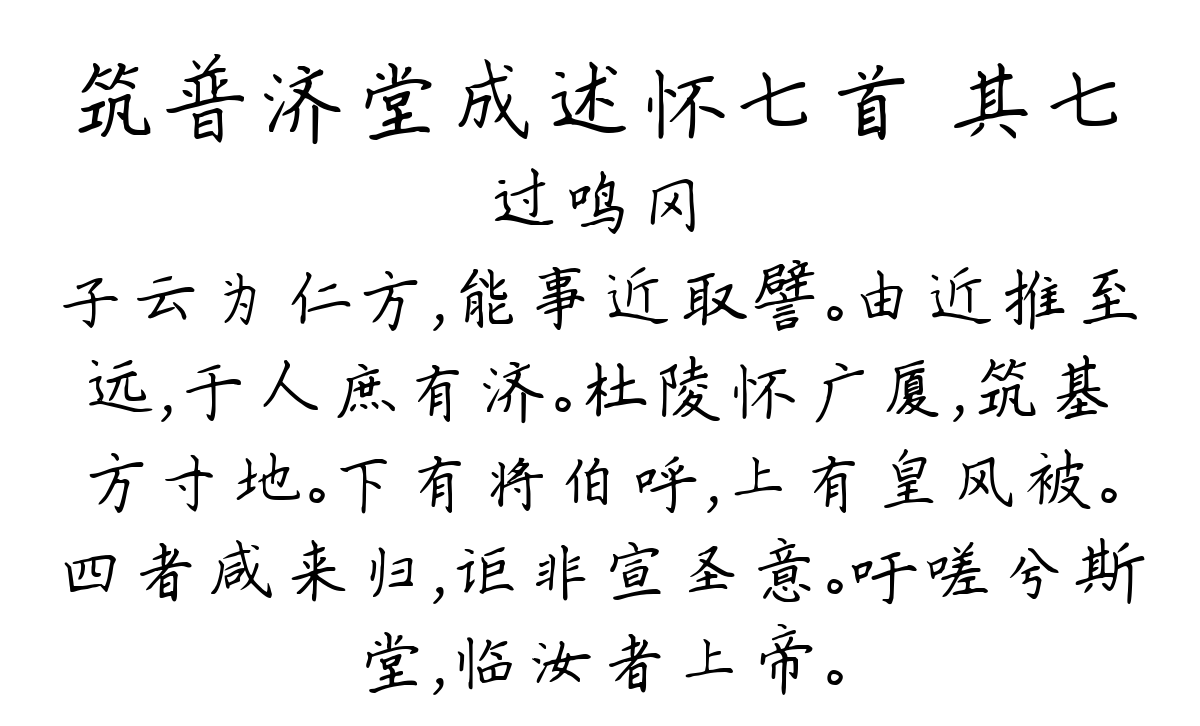 筑普济堂成述怀七首 其七
过鸣冈
子云为仁方,能事近取譬。由近推至
远,于人庶有济。杜陵怀广厦,筑基
方寸地。下有将伯呼,上有皇风被。
四者咸来归,讵非宣圣意。吁嗟兮斯
堂,临汝者上帝。